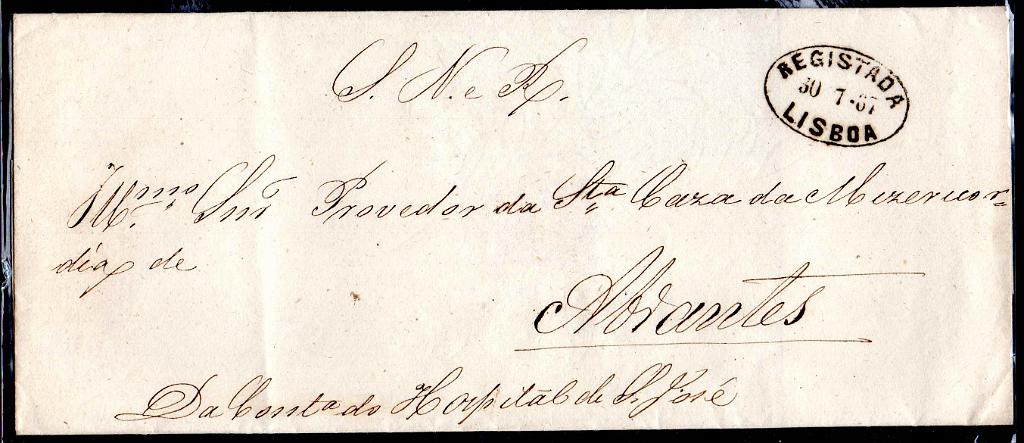 S. N. e R.
REGISTADA
30 7-67
LISBOA
Illmo. Snr Provedor da Sta Caza da Mizericor-
dia de
Abrantes
Da Conta do Hospital de S. José